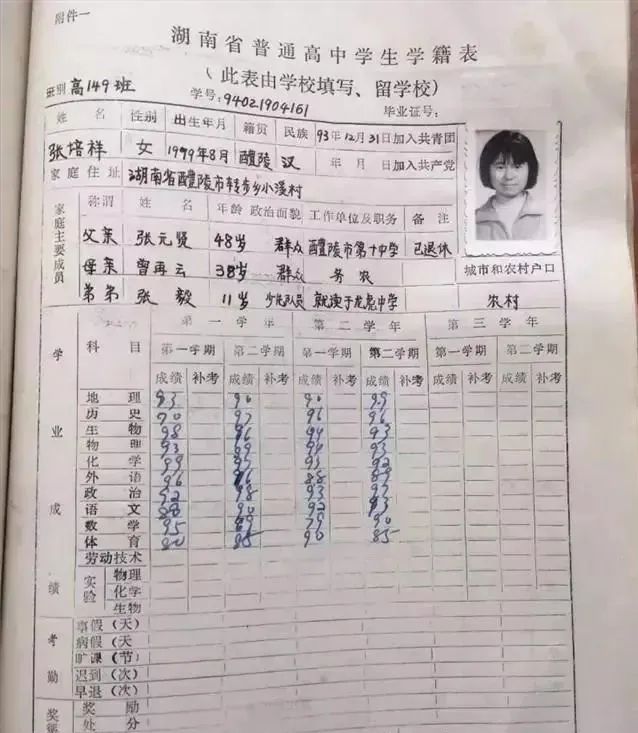 附件一
湖南省普通高中学生学籍表
(此表由学校填写、留学校)
班别 高149班 学号:94021904161 毕业证号:
姓名 性别 出生年月 籍贯 民族 93年12月31日加入共青团
张培祥 女 1979年8月 醴陵 汉 年 月 日加入共产党
家庭住址 湖南省醴陵市 乡小溪村
家庭主要成员 称谓 姓名 年龄 政治面貌 工作单位及职务 备注
父亲 张元贤 48岁 群众 醴陵市第十中学 已退休
城市和农村户口
母亲 曾再云 38岁 群众 务农
弟弟 张毅 11岁 少先队员 就读于龙虎中学 农村
学业成绩 科目 第一学年 第二学年 第三学年
第一学期 第二学期 第一学期 第二学期 第一学期 第二学期
成绩 补考 成绩 补考 成绩 补考 成绩 补考 成绩 补考 成绩 补考
地理 93 90 90 99
历史 90 97 96 96
生物 98 96 94 93
物理 93 89 94 93
化学 99 97 93 92
外语 96 96 88 89
政治 92 98 93 97
语文 88 90 92 93
数学 95 89 79 90
体育 80 85 90 85
劳动技术
实验 物理
化学
生物
考勤 事假(天)
病假(天
旷课(节)
迟到(次)
早退(次)
奖惩 奖励
处分